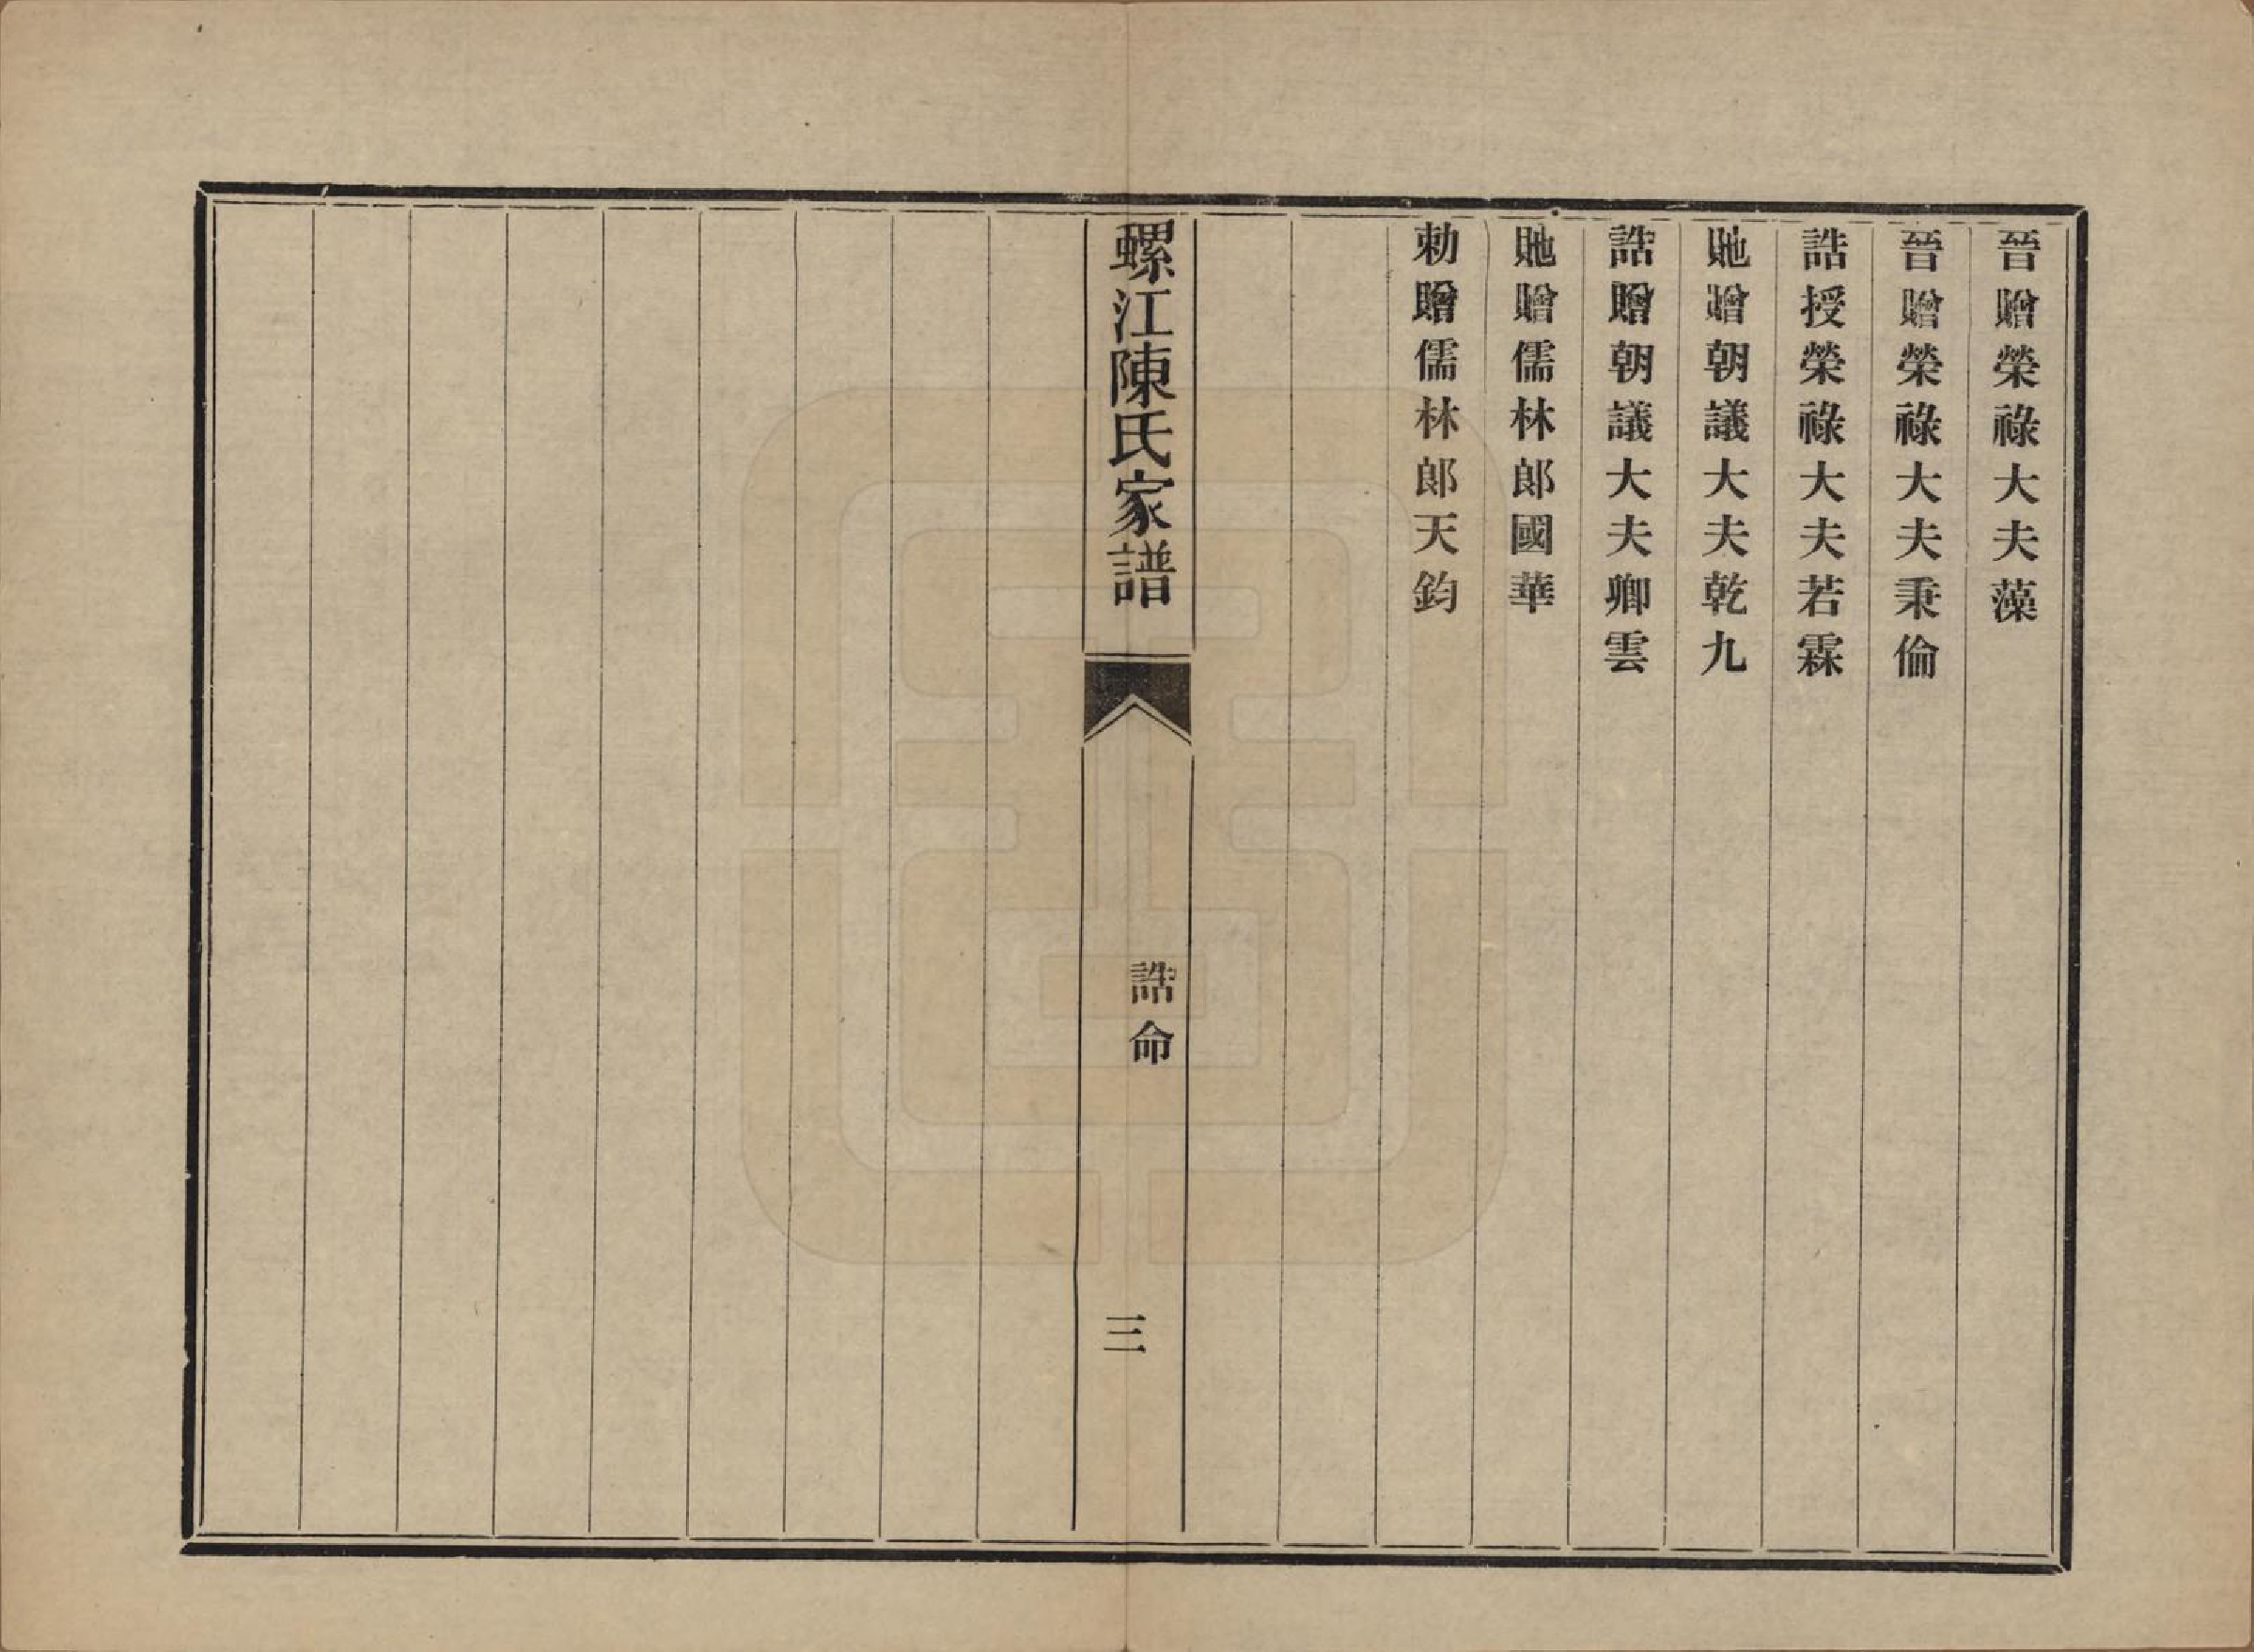 晉贈榮祿大夫藻
晉贈榮祿大夫秉倫
誥授榮祿大夫若霖
貤贈朝議大夫乾九
誥贈朝議大夫卿雲
貤贈儒林郎國華
勅贈儒林郎天鈞
螺江陳氏家譜
誥命
三